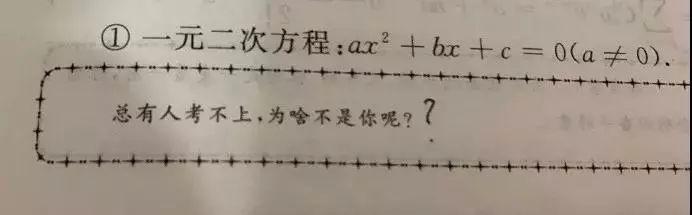 ① 一元二次方程:ax² + bx + c = 0(a ≠ 0).
总有人考不上,为啥不是你呢? ?